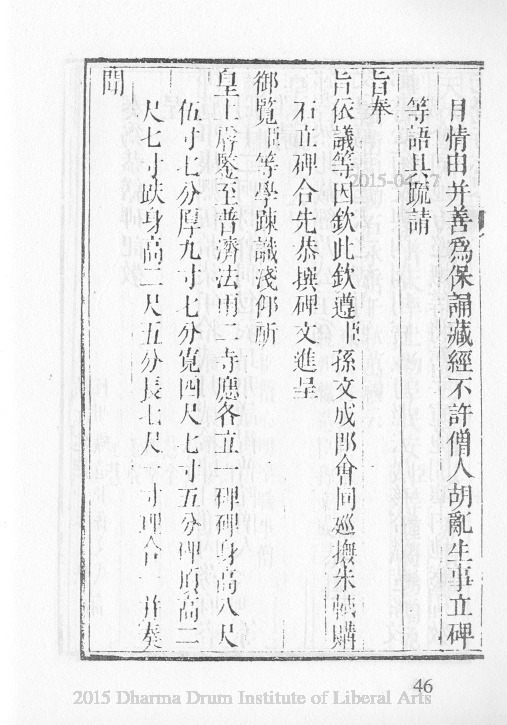 目情由并善為保誦藏經不許僧人胡亂生事立碑
等語具疏請
旨奉
旨依議等因欽此欽遵臣孫文成即會同巡撫朱軾購
石立碑合先恭撰碑文進呈
御覽臣等學踈識淺仰祈
皇上睿鑒至普濟法雨二寺應各立一碑碑身高八尺
伍寸七分厚九寸七分寬四尺七寸五分碑頂高二
尺七寸趺身高二尺五分長七尺一寸理合一并奏
聞
46
2015 Dharma Drum Institute of Liberal Arts